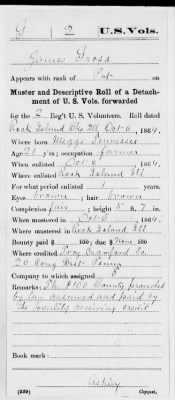 G | 2 | U.S. Vols.
James Gross
Appears with rank of Pvt on
Muster and Descriptive Roll of a Detach-
ment of U. S. Vols. forwarded
for the 2 Reg't U. S. Volunteers. Roll dated
Rock Island Ills Oct 6, 1864.
Where born Meggs Tennessee
Age 21 y'rs; occupation farmer
When enlisted Oct 6, 1864.
Where enlisted Rock Island Ill
For what period enlisted 1 years.
Eyes brown; hair brown
Complexion fair; height 5 ft. 7 in.
When mustered in Oct 6, 1864.
Where mustered in Rock Island Ill
Bounty paid $ 100; due $ None 100
Where credited Troy Crawford Co.
20 Cong Dist Penna
Company to which assigned
Remarks: The $100 Bounty provided
by law assumed and paid by
the locality receiving credit
Book mark:
Ashley
(339) Copyist.